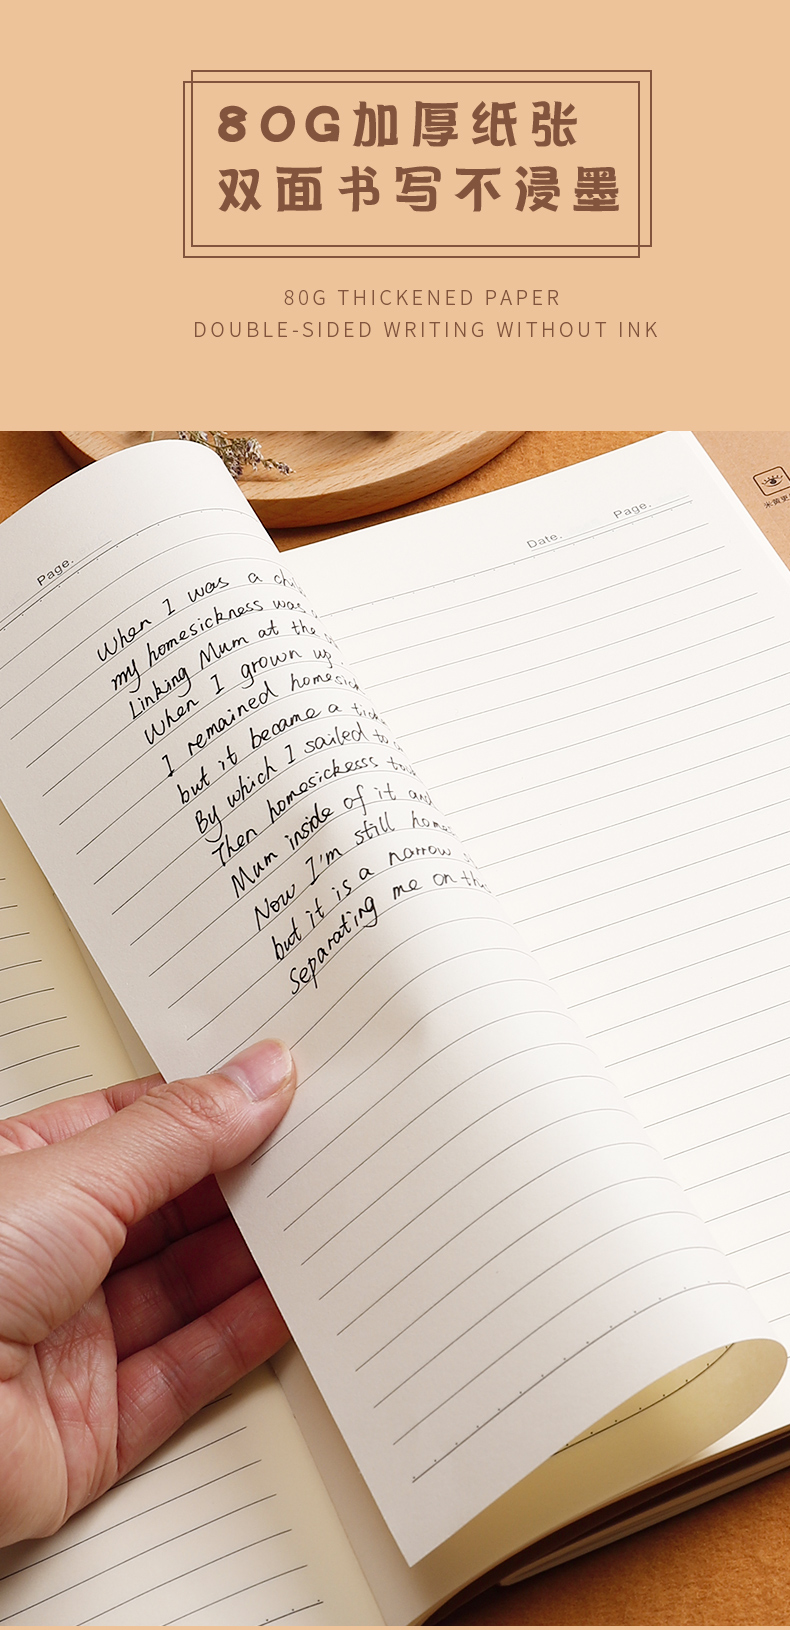 80G加厚纸张
双面书写不浸墨
80G THICKENED PAPER
DOUBLE-SIDED WRITING WITHOUT INK
Page.
Date. Page.
When I was a
my homesickness was
Linking Mum at the
When I grown up
I remained
but it became a
By which I sailed to
Then homesickesss
Mum inside of it and
Now I'm still
but it is a narrow
Separating me on